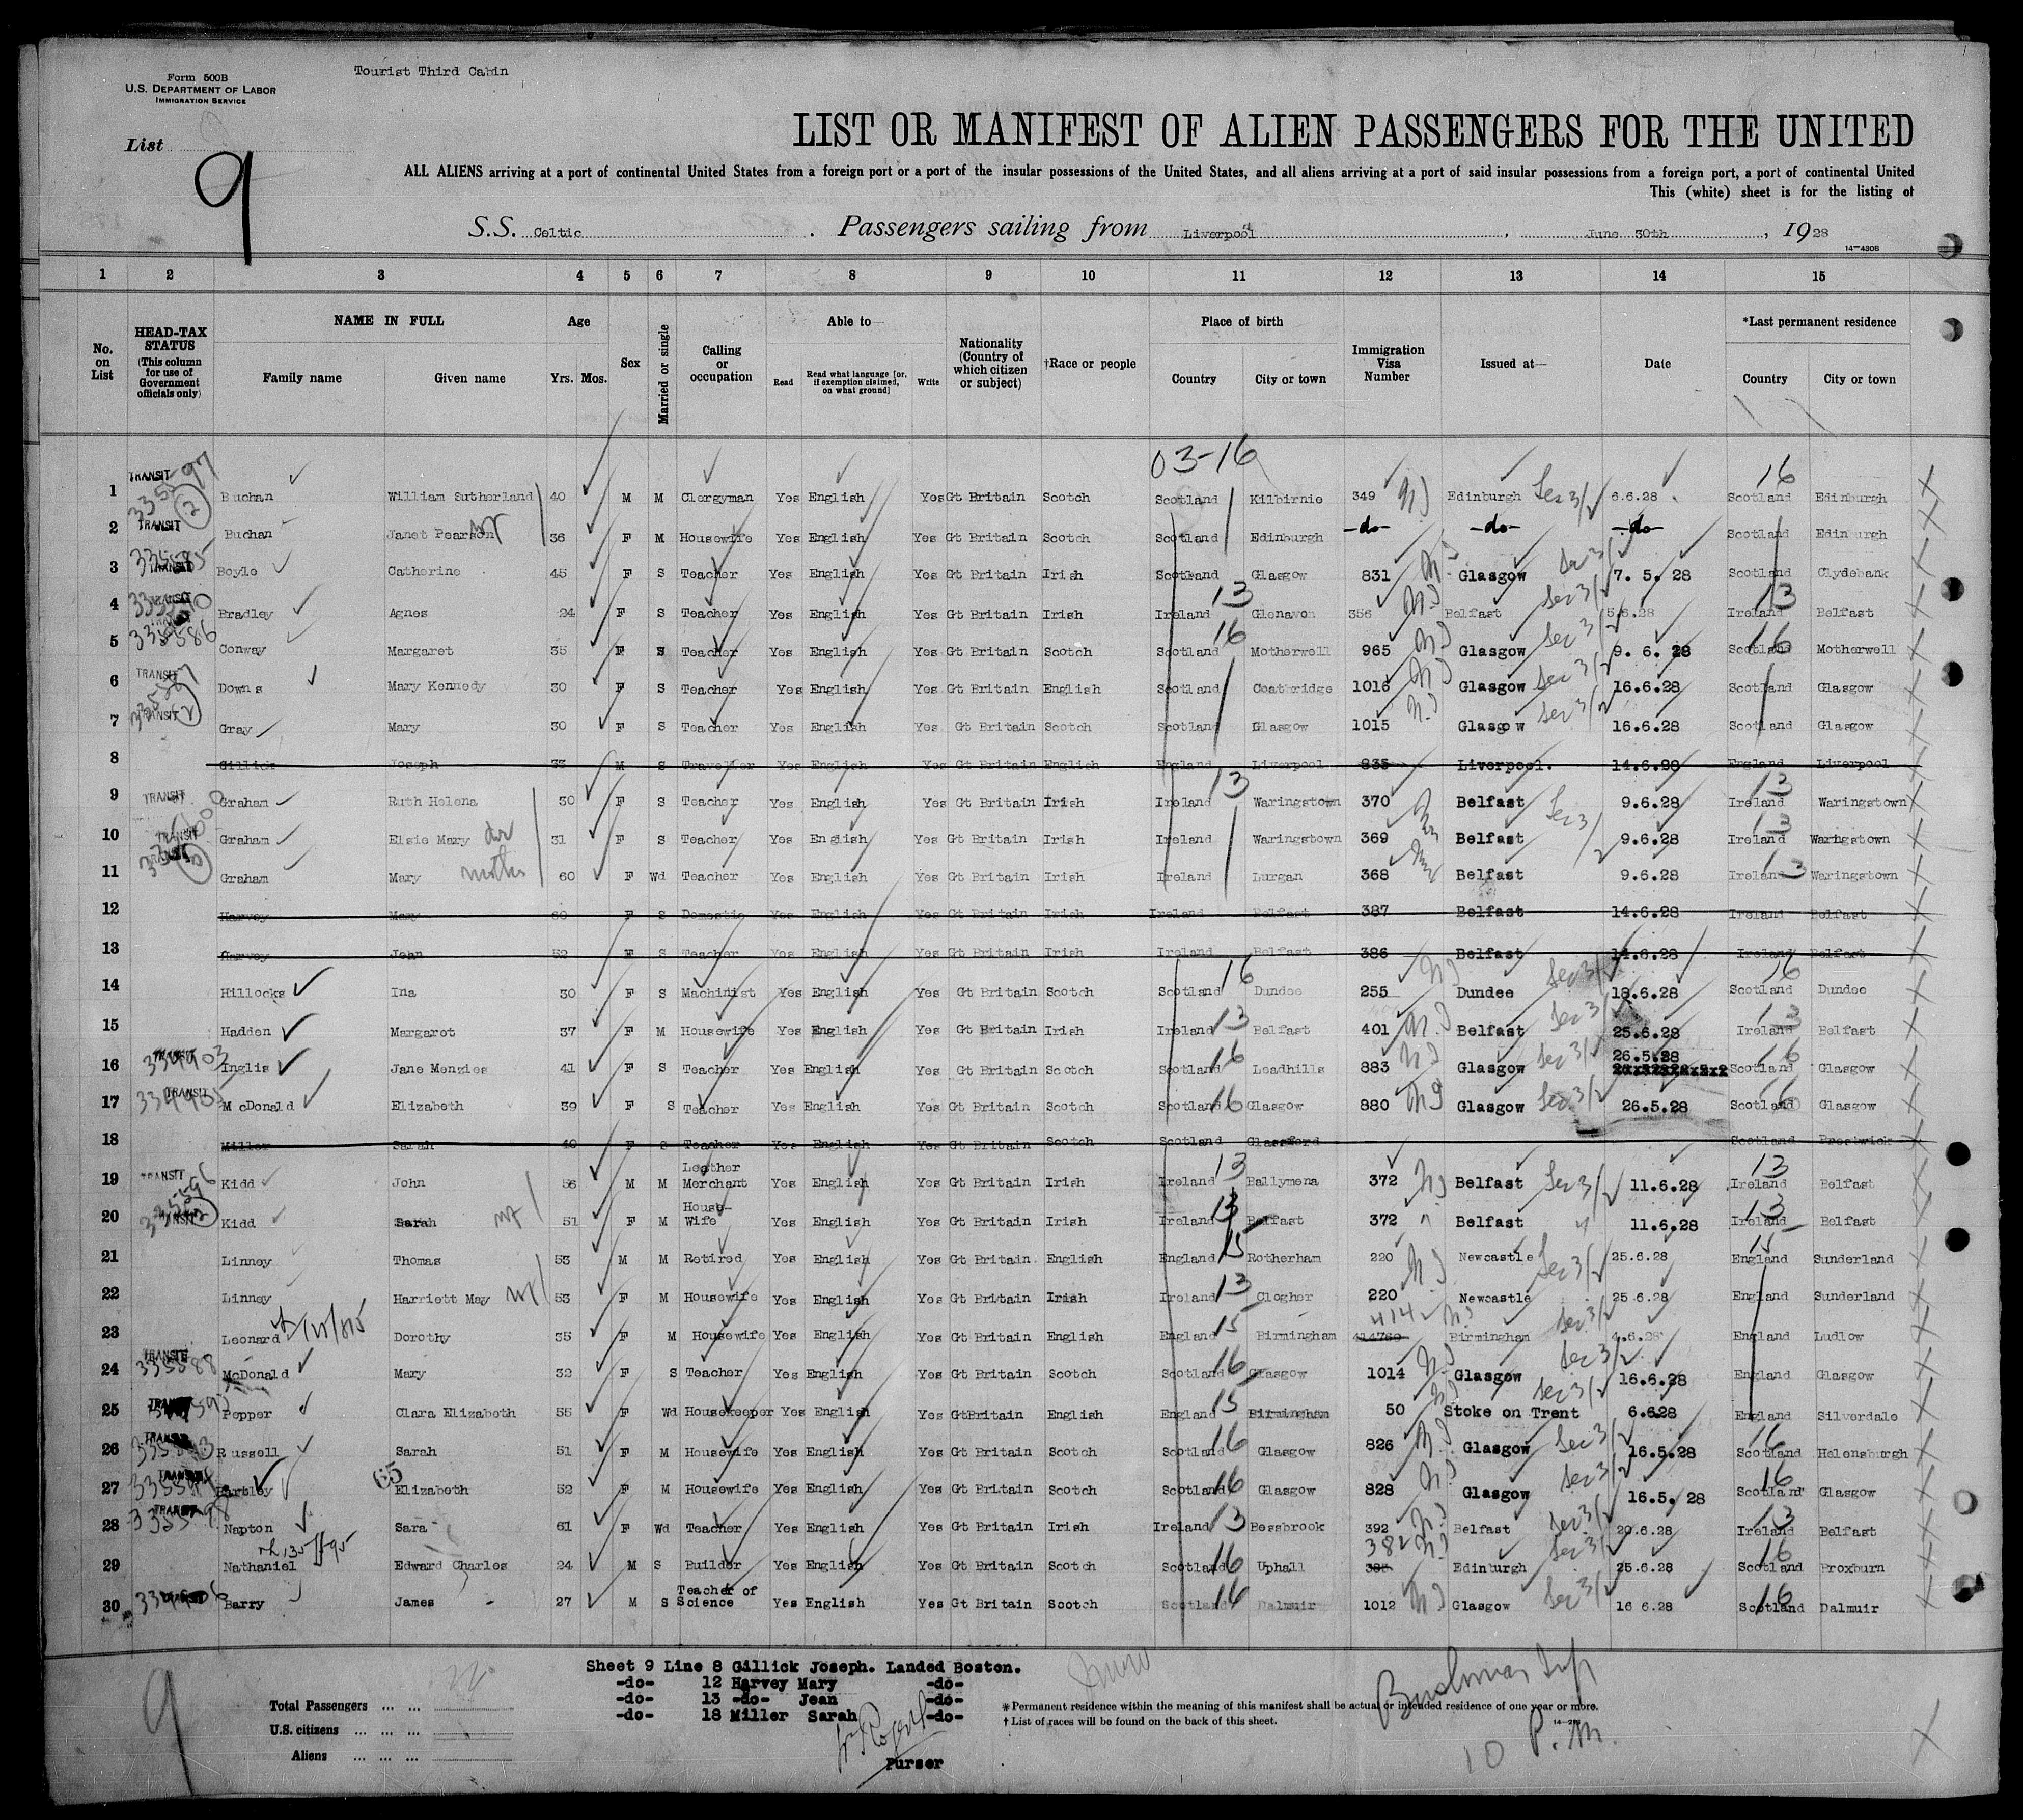 Form 500B
U.S. DEPARTMENT OF LABOR
IMMIGRATION SERVICE
Tourist Third Cabin
List 9
LIST OR MANIFEST OF ALIEN PASSENGERS FOR THE UNITED
ALL ALIENS arriving at a port of continental United States from a foreign port or a port of the insular possessions of the United States, and all aliens arriving at a port of said insular possessions from a foreign port, a port of continental United
This (white) sheet is for the listing of
S.S. Celtic . Passengers sailing from Liverpool , June 30th , 1928
14-430B
1 2 3 4 5 6 7 8 9 10 11 12 13 14 15
No. on List
HEAD-TAX STATUS (This column for use of Government officials only)
NAME IN FULL
Family name Given name
Age
Yrs. Mos.
Sex
Married or single
Calling or occupation
Able to
Read
Read what language [or, if exemption claimed, on what ground]
Write
Nationality (Country of which citizen or subject)
†Race or people
Place of birth
Country City or town
Immigration Visa Number
Issued at—
Date
*Last permanent residence
Country City or town
03-16 16
1 TRANSIT Buchan William Sutherland 40 M M Clergyman Yes English Yes Gt Britain Scotch Scotland Kilbirnie 349 Edinburgh Sec 3/2 6.6.28 Scotland Edinburgh
2 TRANSIT Buchan Janet Pearson 36 F M Housewife Yes English Yes Gt Britain Scotch Scotland Edinburgh -do- -do- -do- Scotland Edinburgh
3 TRANSIT Boyle Catherine 45 F S Teacher Yes English Yes Gt Britain Irish Scotland Glasgow 831 Glasgow Sec 3/2 7. 5. 28 Scotland Clydebank
4 TRANSIT Bradley Agnes 24 F S Teacher Yes English Yes Gt Britain Irish Ireland 13 Glenavon 356 Belfast Sec 3/2 5.6.28 Ireland 13 Belfast
5 335586 Conway Margaret 35 F S Teacher Yes English Yes Gt Britain Scotch Scotland 16 Motherwell 965 Glasgow Sec 3/2 9. 6. 28 Scotland 16 Motherwell
6 TRANSIT Downs Mary Kennedy 30 F S Teacher Yes English Yes Gt Britain English Scotland Coatbridge 1016 Glasgow Sec 3/2 16.6.28 Scotland Glasgow
7 TRANSIT Gray Mary 30 F S Teacher Yes English Yes Gt Britain Scotch Scotland Glasgow 1015 Glasgow Sec 3/2 16.6.28 Scotland Glasgow
8 Gillick Joseph 33 M S Traveller Yes English Yes Gt Britain English England Liverpool 835 Liverpool. 14.6.28 England Liverpool
9 TRANSIT Graham Ruth Helena 30 F S Teacher Yes English Yes Gt Britain Irish Ireland 13 Waringstown 370 Belfast Sec 9.6.28 Ireland 13 Waringstown
10 TRANSIT Graham Elsie Mary 31 F S Teacher Yes English Yes Gt Britain Irish Ireland Waringstown 369 Belfast 3/2 9.6.28 Ireland 13 Waringstown
11 Graham Mary mother 60 F Wd Teacher Yes English Yes Gt Britain Irish Ireland Lurgan 368 Belfast 9.6.28 Ireland 13 Waringstown
12 Harvey Mary 60 F S Domestic Yes English Yes Gt Britain Irish Ireland Belfast 387 Belfast 14.6.28 Ireland Belfast
13 Harvey Jean 52 F S Teacher Yes English Yes Gt Britain Irish Ireland Belfast 386 Belfast 14.6.28 Ireland Belfast
14 Hillocks Ina 30 F S Machinist Yes English Yes Gt Britain Scotch Scotland 16 Dundee 255 Dundee Sec 3/2 18.6.28 Scotland 16 Dundee
15 Hadden Margaret 37 F M Housewife Yes English Yes Gt Britain Irish Ireland 13 Belfast 401 Belfast Sec 3/2 25.6.28 Ireland 13 Belfast
16 TRANSIT 334903 Inglis Jane Menzies 41 F S Teacher Yes English Yes Gt Britain Scotch Scotland 16 Leadhills 883 Glasgow Sec 3/2 26.5.28 Scotland 16 Glasgow
17 TRANSIT 334905 McDonald Elizabeth 39 F S Teacher Yes English Yes Gt Britain Scotch Scotland 16 Glasgow 880 Glasgow Sec 3/2 26.5.28 Scotland 16 Glasgow
18 Miller Sarah 40 F S Teacher Yes English Yes Gt Britain Scotch Scotland Glassford Scotland Prestwick
19 TRANSIT Kidd John 56 M M Leather Merchant Yes English Yes Gt Britain Irish Ireland 13 Ballymena 372 Belfast Sec 3/2 11.6.28 Ireland 13 Belfast
20 TRANSIT Kidd Sarah 51 F M House-Wife Yes English Yes Gt Britain Irish Ireland 13 Belfast 372 Belfast 11.6.28 Ireland 13 Belfast
21 Linney Thomas 53 M M Retired Yes English Yes Gt Britain English England 15 Rotherham 220 Newcastle Sec 3/2 25.6.28 England 15 Sunderland
22 Linney Harriett May 53 F M Housewife Yes English Yes Gt Britain Irish Ireland 13 Clogher 220 Newcastle 25.6.28 England Sunderland
23 Leonard Dorothy 35 F M Housewife Yes English Yes Gt Britain English England 15 Birmingham 414 Birmingham Sec 3/2 4.6.28 England Ludlow
24 TRANSIT 335588 McDonald Mary 32 F S Teacher Yes English Yes Gt Britain Scotch Scotland 16 Glasgow 1014 Glasgow Sec 3/2 16.6.28 England Glasgow
25 Pepper Clara Elizabeth 55 F Wd Housekeeper Yes English Yes GtBritain English England 15 Birmingham 50 Stoke on Trent Sec 3/2 6.6.28 England Silverdale
26 TRANSIT Russell Sarah 51 F M Housewife Yes English Yes Gt Britain Scotch Scotland 16 Glasgow 826 Glasgow Sec 3/2 16.5.28 Scotland 16 Helensburgh
27 TRANSIT Bartley 65 Elizabeth 52 F M Housewife Yes English Yes Gt Britain Scotch Scotland 16 Glasgow 828 Glasgow Sec 3/2 16.5. 28 Scotland 16 Glasgow
28 TRANSIT Napton Sara 61 F Wd Teacher Yes English Yes Gt Britain Irish Ireland 13 Bessbrook 392 Belfast Sec 3/2 20.6.28 Ireland 13 Belfast
29 Nathaniel Edward Charles 24 M S Builder Yes English Yes Gt Britain Scotch Scotland 16 Uphall 382 Edinburgh Sec 3/2 25.6.28 Scotland 16 Broxburn
30 Barry James - 27 M S Teacher of Science Yes English Yes Gt Britain Scotch Scotland 16 Dalmuir 1012 Glasgow Sec 3/2 16 6.28 Scotland 16 Dalmuir
Sheet 9 Line 8 Gillick Joseph. Landed Boston.
-do- 12 Harvey Mary -do-
-do- 13 -do- Jean -do-
-do- 18 Miller Sarah -do-
Purser
9
Total Passengers ... ...
U.S. citizens ... ... ...
Aliens ... ... ...
*Permanent residence within the meaning of this manifest shall be actual or intended residence of one year or more.
†List of races will be found on the back of this sheet.
10 P.M.